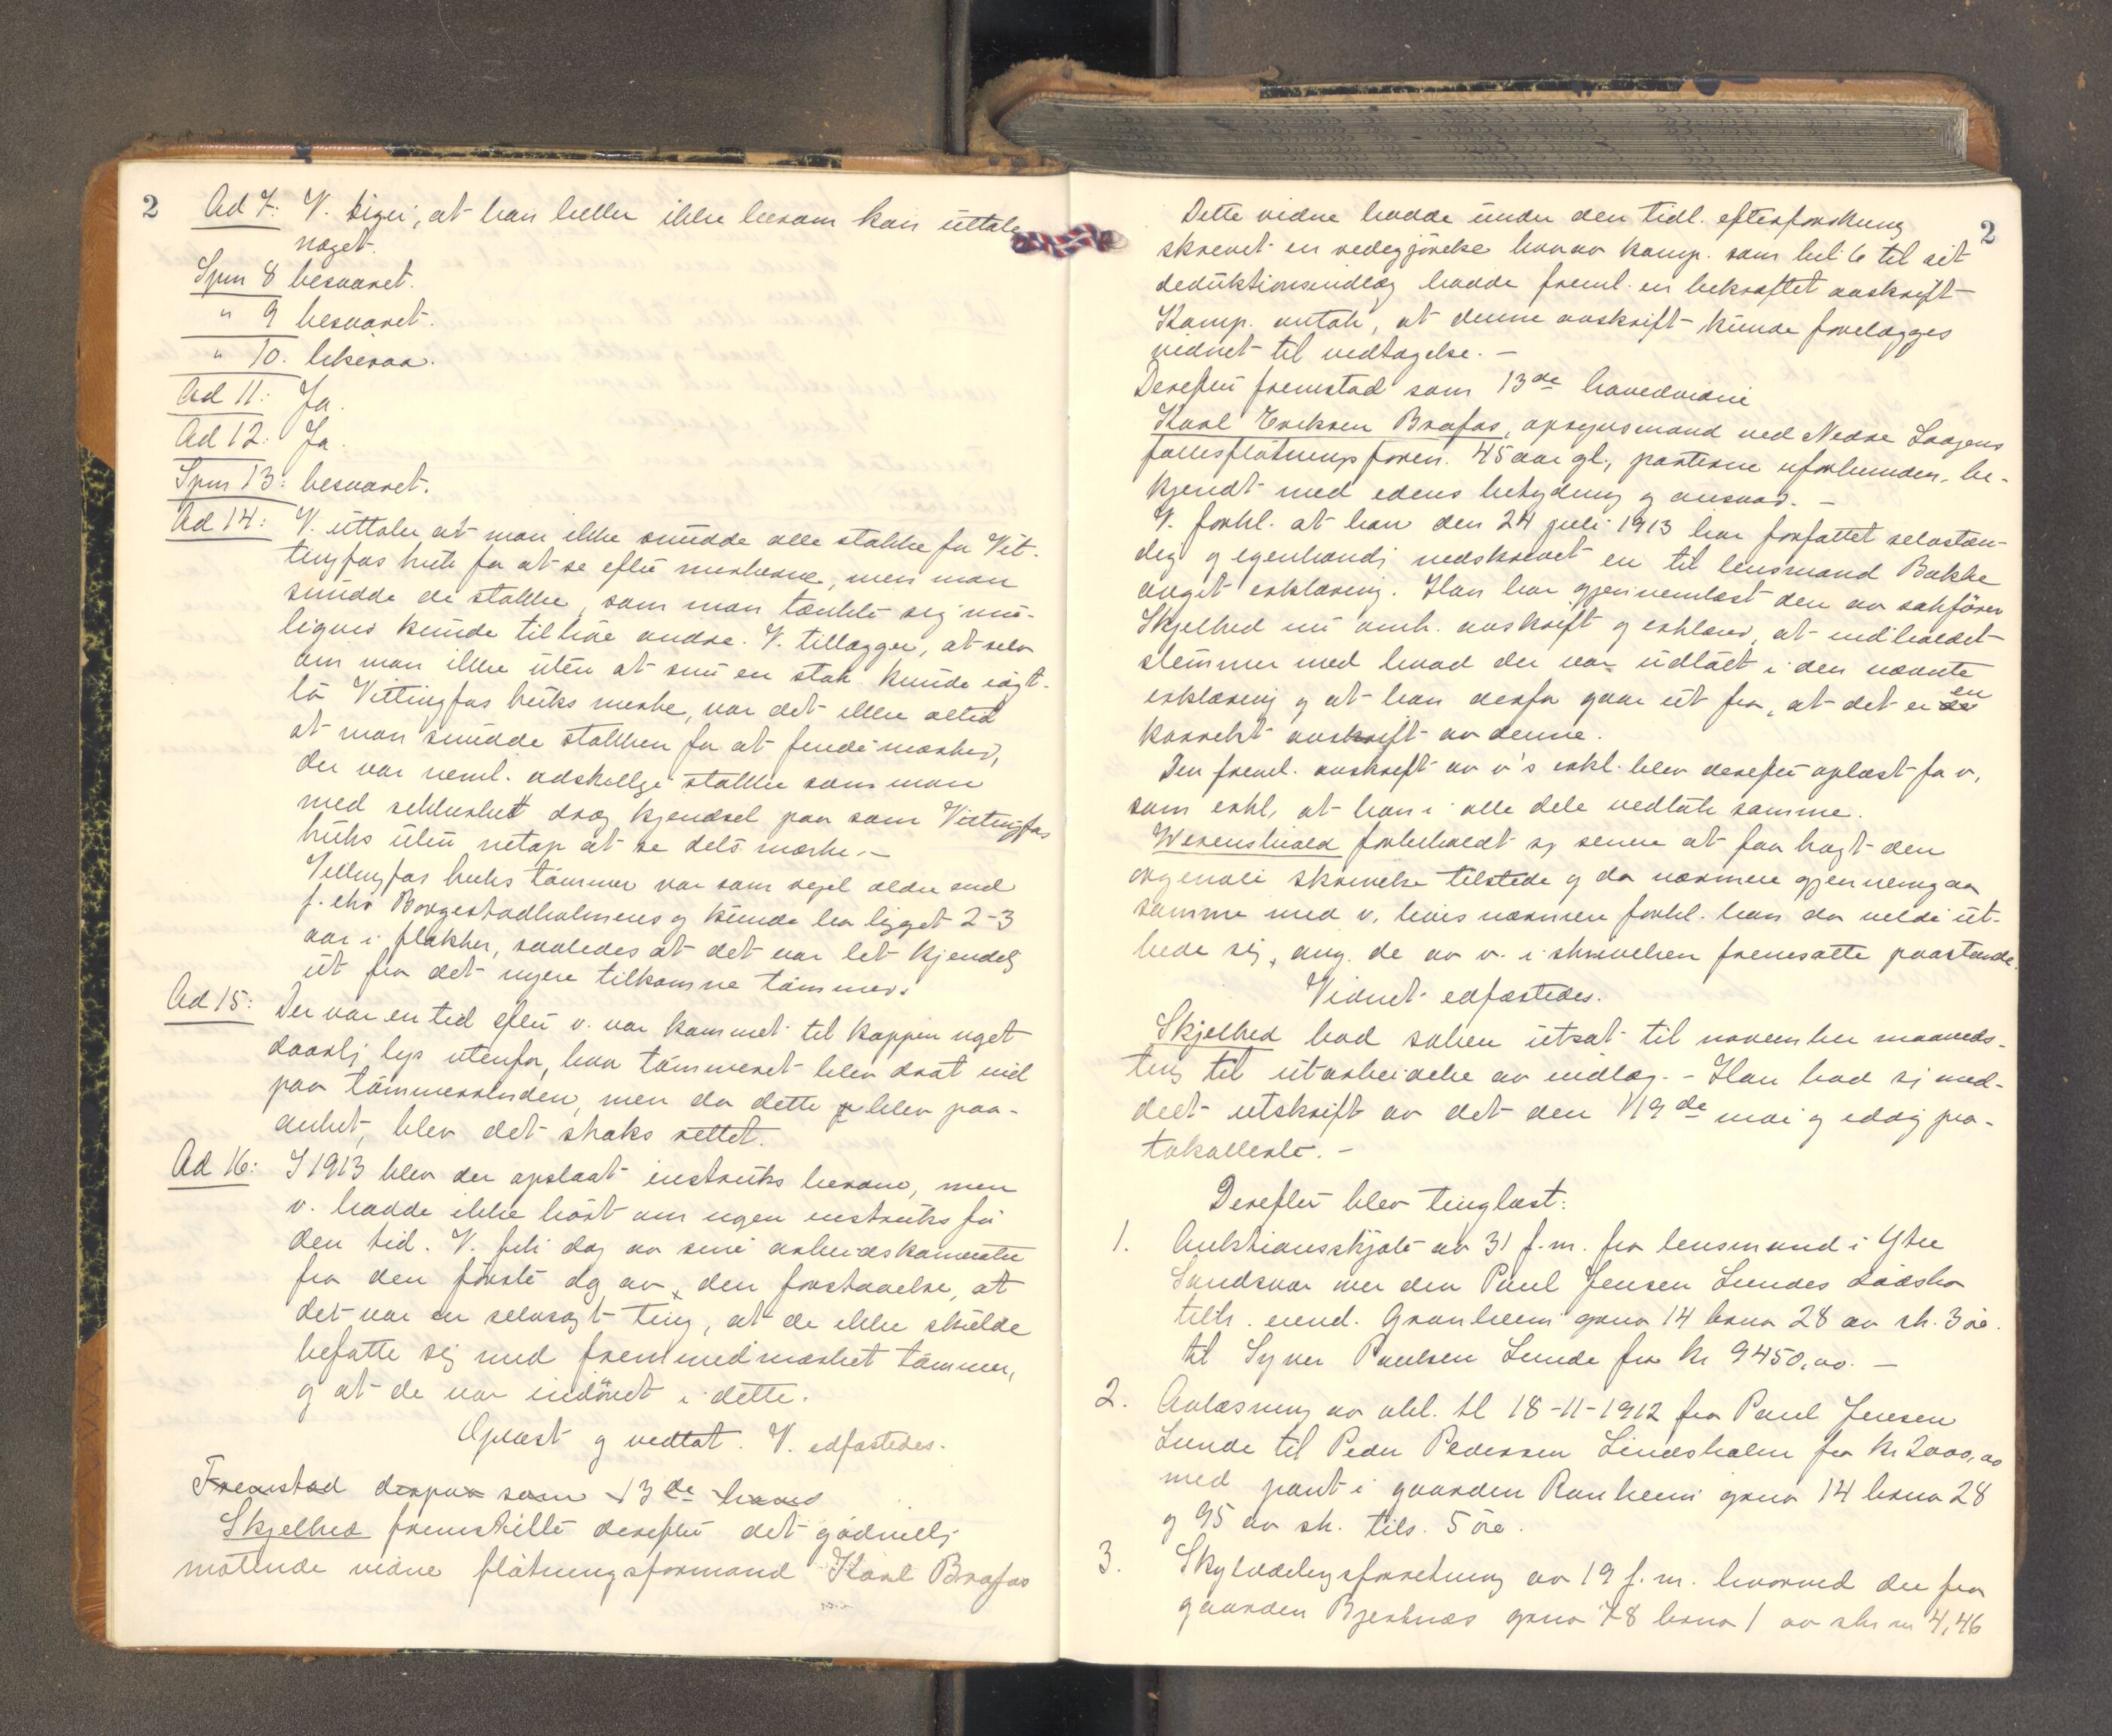 2
Ad 7: V. siger, at han heller ikke herom kan uttale
noget.
Spm 8 besvaret.
" 9 besvaret.
" 10. likesaa.
Ad 11: Ja.
Ad 12: Ja.
Spm 13: besvaret.
Ad 14: V. uttaler at man ikke snudde alle stokke fra Vit-
tingfos bruk for at se efter merkerne, men man
snudde de stokke, som man tænkte sig mu-
ligvis kunde tilhøre andre. V. tillægger, at selv
om man ikke uten at snu en stok kunde iagt-
ta Vittingfos bruks merke, var det ikke altid
at man snudde stokken for at finde merket,
der var neml. adskillige stokke som man
med sikkerhet drog kjendsel paa som Vittingfos
bruks uten netop at se dets merke. -
Vittingfos bruks tømmer var som regel ældre end
f. eks Borgestadholmens og kunde ha ligget 2-3
aar i flakker, saaledes at det var let kjendelig
ut fra det nyere tilkomne tømmer.
Ad 15: Der var en tid efter v. var kommet til kappen noget
daarlig lys utenfor, hvor tømmeret blev drat ind
paa tømmerrenden, men da dette blev paa-
anket, blev det straks rettet.
Ad 16: I 1913 blev der opslaat instruks herom, men
v. hadde ikke hørt om nogen instruks før
den tid. V. fik dog av sine arbeidskamerater
fra den første dag av den forstaaelse, at
det var en selvsagt ting, at de ikke skulde
befatte sig med fremmedmerket tømmer,
og at de var indøvet i dette.
Oplæst og vedtat. V. edfæstedes.
Fremstod derpaa som 13de hoved
Skjelbred fremstilte derefter det godvillig
møtende vidne fløtningsformand Karl Brafos
2
Dette vidne hadde under den tidl. efterforskning
skrevet en redegjørelse hvorav komp. som bil. 6 til sit
deduktionsindlæg hadde freml. en bekræftet avskrift
Komp. antok, at denne avskrift kunde forelægges
vidnet til vedtagelse. -
Derefter fremstod som 13de hovedvidne
Karl Eriksen Brafos, opsynsmand ved Nedre Laagens
fællesfløtningsforen. 45 aar gl., parterne uforbunden, be-
kjendt med edens betydning og ansvar. -
V. forkl. at han den 24 juli 1913 har forfattet selvstæn-
dig og egenhændig nedskrevet en til lensmand Bakke
avgit erklæring. Han har gjennemlæst den av sakfører
Skjelbred nu omh. avskrift og erklærer, at indholdet
stemmer med hvad der var udtalt i den nævnte
erklæring og at han derfor gaar ut fra, at det er en
korrekt avskrift av denne.
Den freml. avskrift av v's erkl. blev derefter oplæst for v,
som erkl. at han i alle dele vedtok samme.
Werenskiold forbeholdt sig senere at faa bragt den
originale skrivelse tilstede og da nærmere gjennemgaa
samme med v, hvis nærmere forkl. han da vilde ut-
bede sig, ang. de av v. i skrivelsen fremsatte paastande.
Vidnet edfæstedes.
Skjelbred bad saken utsat til november maaneds-
ting til utarbeidelse av indlæg. - Han bad sig med-
delt utskrift av det den 19de mai og idag pro-
tokollerte. -
Derefter blev tinglæst:
1. Auktionsskjøte av 31 f.m. fra lensmand i Ytre
Sandsvær over den Paul Jensen Lundes dødsbo
tilh. eiend. Granheim gnr 14 brnr 28 av sk. 3 øre
til Syver Paulsen Lunde for kr 9450,00. -
2. Avlæsning av obl. tl 18-11-1912 fra Paul Jensen
Lunde til Peder Pedersen Lindsholm for kr 2000,00
med pant i gaarden Ranheim gnr 14 brnr 28
og 95 av sk. tils. 5 øre.
3. Skylddelingsforretning av 19 f.m. hvorved der fra
gaarden Bjerknes gnr 78 brnr 1 av sk m 4,46